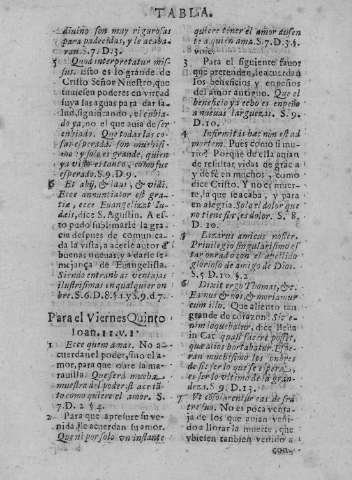 TABLA.
divino son muy rigurosas
para padecidas, y le acaba-
ran. S. 7. D. 3.
5 Quod interpretatur mis-
sus. esto es lo grande de
Cristo Señor Nuestro, que
tuuiesen poderes en virtud
suya las aguas para dar sa-
lud, significando, el enbia-
do ya, no el que auia de ser
enbiado. Que todas las co-
sas esperadas. son
mo, y solo es grande, quien
ya visto es tanto, como fue
esperado. S. 9. D. 9.
6 Et abij, & laui, & vidi.
Ecce annunciator es gra-
tiæ, ecce Euangelizat Iu-
dæis, dice S. Agustin. A es-
to pudo sublimarle la gra-
cia despues de comunica-
da la vista, a acerle autor de
buenas nueuas, y a darle se-
mejança de Euangelista.
Siendo entrañas ventajas
ilustrisimas en qualquier on
bre. S. 6. D. 8. §. 1 y S. 9. d. 7.
Para el Viernes Quinto
Ioan. 11. V. 1.
1. Ecce quem amas. No a-
cuerdan el poder, sino el a-
mor, para que obre la ma-
rauilla. Que será mucha
muestra del poder si acetá
to como quiere el amor. S.
7. D. 2 § 4.
2. Para que apresure su ve-
nida, le acuerdan su amor.
Que ni por solo vn instante
quiere tener el amor ausen-
te a quien ama. S. 7. D. 3 §.
vnic.
3 Para el siguiente fauor
que pretenden, le acuerdan
los beneficios y enpeños
del amor antiguo. Que el
beneficio ya echo es enpeño
a nueuas larguezas. S. 9.
D. 10.
4 Infirmitas hæc non est ad
mortem. Pues como si mu-
rio? Porque de ella auian
de resultar vidas de gracia
y de fè en muchos, como
dice Cristo. Y no es muer-
te, la que se acaba, y para
en alegria. Solo el dolor que
no tiene fin, es dolor. S. 8.
D. 10.
5 Lazarus amicus noster.
Priuilegio singularisimo es-
tar onrado con el apellido
glorioso de amigo de Dios.
S. 5 D. 10 § 2.
6 Dixit ergo Thomas, &c.
Eamus & nos, & moriamur
cum illo. Que aliento tan
grande de coraçon! Sic e-
nim loquebatur, dice
in Cat. quasi facere posset,
que aun los onbres
de si es ser lo que se espera,
es ser lo vltimo de la gran-
deza. S. 9 D. 13.
7
No es poca venta-
ja de los que auian veni-
do a llorar la muerte, que
vbiesen tanbien venido a